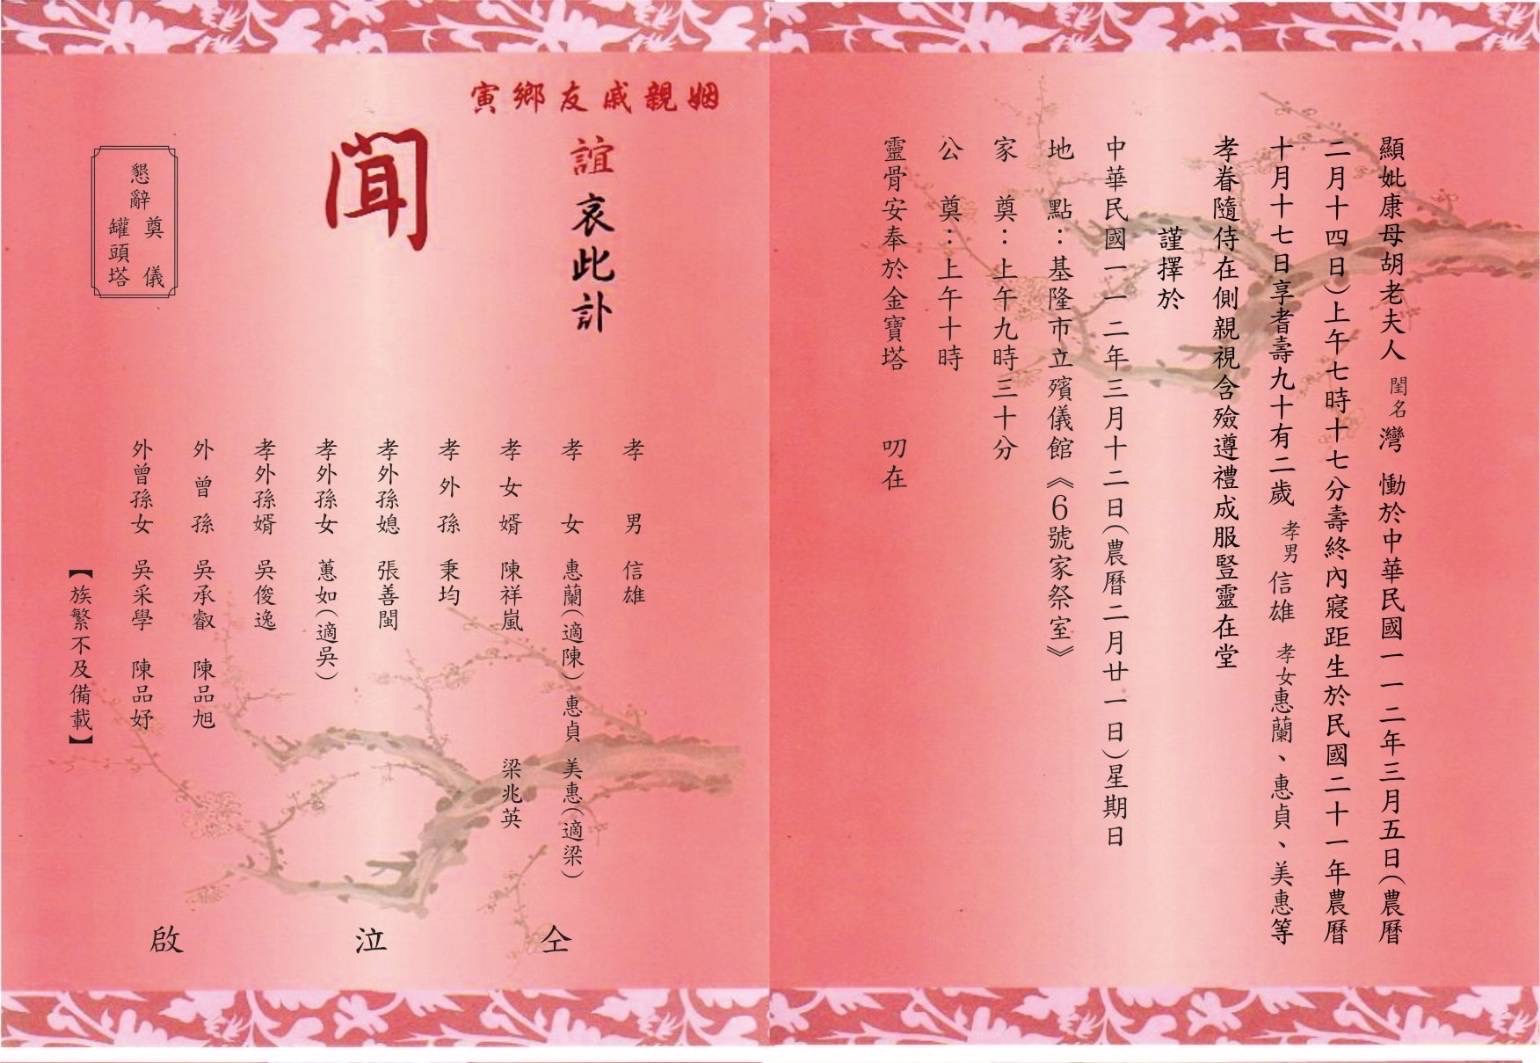 顯妣康母胡老夫人 閨名 灣 慟於中華民國一一二年三月五日(農曆
二月十四日)上午七時十七分壽終內寢距生於民國二十一年農曆
十月十七日享耆壽九十有二歲 孝男 信雄 孝女惠蘭、惠貞、美惠等
孝眷隨侍在側親視含殮遵禮成服豎靈在堂
謹擇於
中華民國一一二年三月十二日(農曆二月廿一日)星期日
地 點:基隆市立殯儀館《6號家祭室》
家 奠:上午九時三十分
公 奠:上午十時
靈骨安奉於金寶塔 叨在
姻親戚友鄉寅
誼哀此訃
聞
孝男 信雄
孝女 惠蘭(適陳) 惠貞 美惠(適梁)
孝女婿 陳祥嵐 梁兆英
孝外孫 秉均
孝外孫媳 張善閩
孝外孫女 蕙如(適吳)
孝外孫婿 吳俊逸
外曾孫 吳承叡 陳品旭
外曾孫女 吳采學 陳品妤
【族繁不及備載】
仝泣啟
懇辭
奠儀
罐頭塔